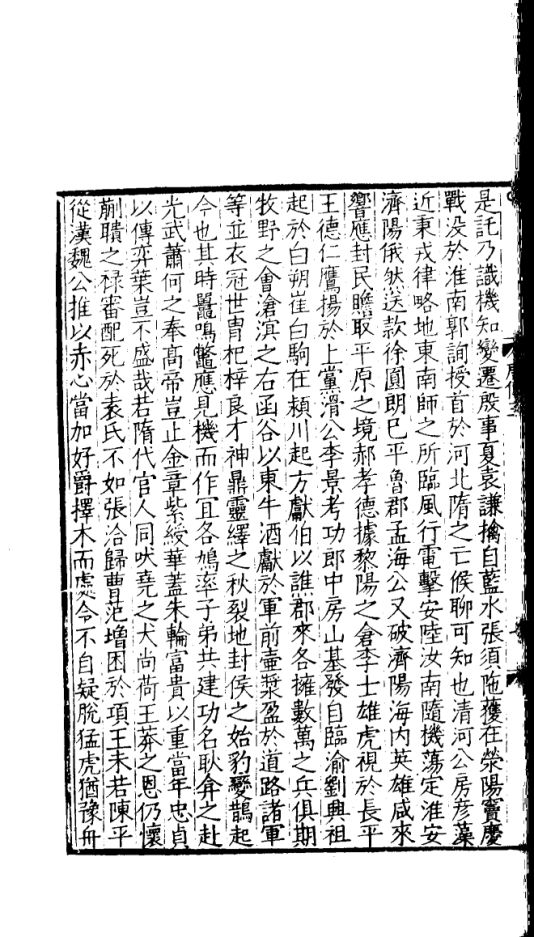 是託乃識機知變遷殷事夏袁謙擒自藍水張須陁獲在滎陽竇慶
戰没於淮南郭詢授首於河北隋之亡候聊可知也清河公房彦藻
近秉戎律略地東南師之所臨風行電擊安陸汝南隨機蕩定淮安
濟陽俄然送款徐圓朗已平魯郡孟海公又破濟陽海内英雄咸來
響應封民贍取平原之境郝孝德據黎陽之倉李士雄虎視於長平
王德仁鷹揚於上黨滑公李景考功郎中房山基發自臨渝劉興祖
起於白朔崔白駒在潁川起方獻伯以譙郡來各擁數萬之兵俱期
牧野之會滄溟之右函谷以東牛酒獻於軍前壷漿盈於道路諸軍
等並衣冠世胄杞梓良才神鼎靈繹之秋裂地封侯之始豹變鵲起
今也其時鼉鳴鼈應見機而作宜各鳩率子弟共建功名耿弇之赴
光武蕭何之奉髙帝豈止金章紫綬華蓋朱輪富貴以重當年忠貞
以傳弈葉豈不盛哉若隋代官人同吠堯之犬尚荷王莽之恩仍懷
蒯聵之禄審配死於袁氏不如張洽歸曹范增困於項王未若陳平
從漢魏公推以赤心當加好爵擇木而處令不自疑脫猛虎猶豫舟